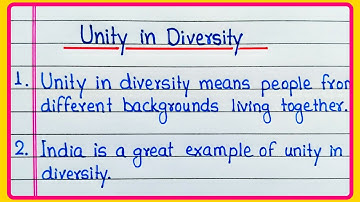 Unity in Diversity
1. Unity in diversity means people from
different backgrounds living together.
2. India is a great example of unity in
diversity.